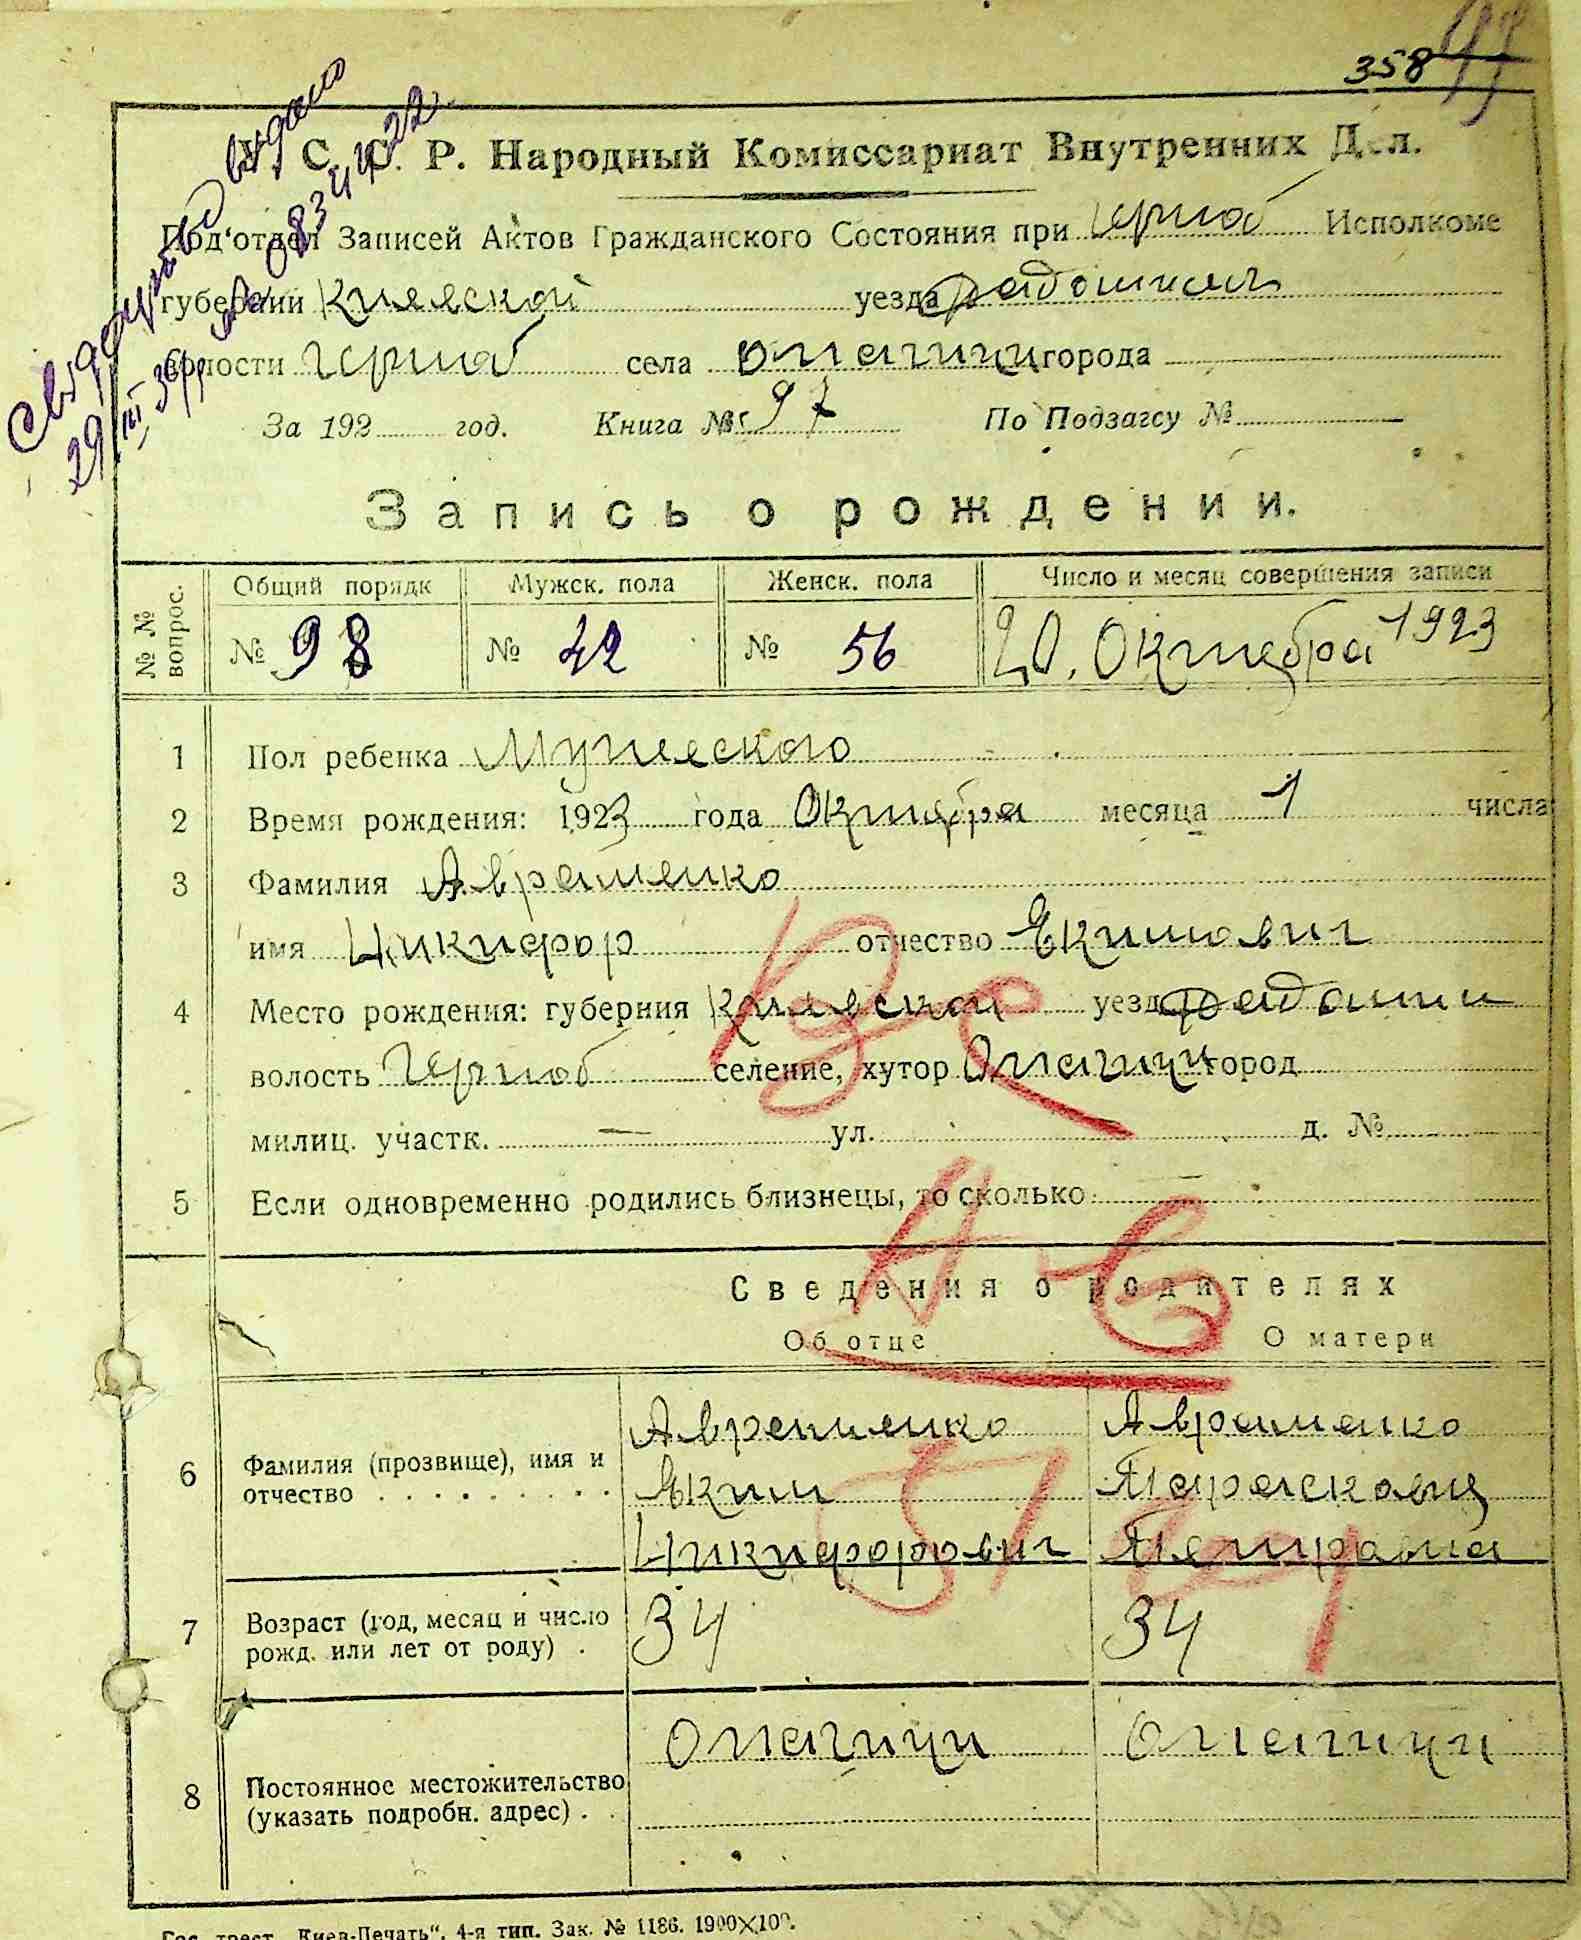 358
Свідоцтво видано
У. С. С. Р. Народный Комиссариат Внутренних Дел.
Под'отдел Записей Актов Гражданского Состояния при Черноб Исполкоме
губернии Киевской уезда Радомисл
волости Черноб села Опачичи города
За 192 год. Книга № 97 По Подзагсу №
Запись о рождении.
№ № вопрос. Общий порядк Мужск. пола Женск. пола Число и месяц совершения записи
№ 98 № 42 № 56 20. Октебра 1923
1 Пол ребенка Мужеского
2 Время рождения: 1923 года Октября месяца 1 числа
3 Фамилия Авраменко
имя Никифор отчество Екимович
4 Место рождения: губерния Киевской уезд Радоми
волость Черноб селение, хутор Опачичи город
милиц. участк. — ул. д. №
5 Если одновременно родились близнецы, то сколько —
Сведения о родителях
Об отце О матери
6 Фамилия (прозвище), имя и отчество Авраменко Еким Никифорович Авраменко Парасковия Петровна
7 Возраст (год, месяц и число рожд. или лет от роду) 34 34
8 Постоянное местожительство (указать подробн. адрес) Опачичи Опачичи
Гос. трест „Киев-Печать“, 4-я тип. Зак. № 1186. 1900×100.